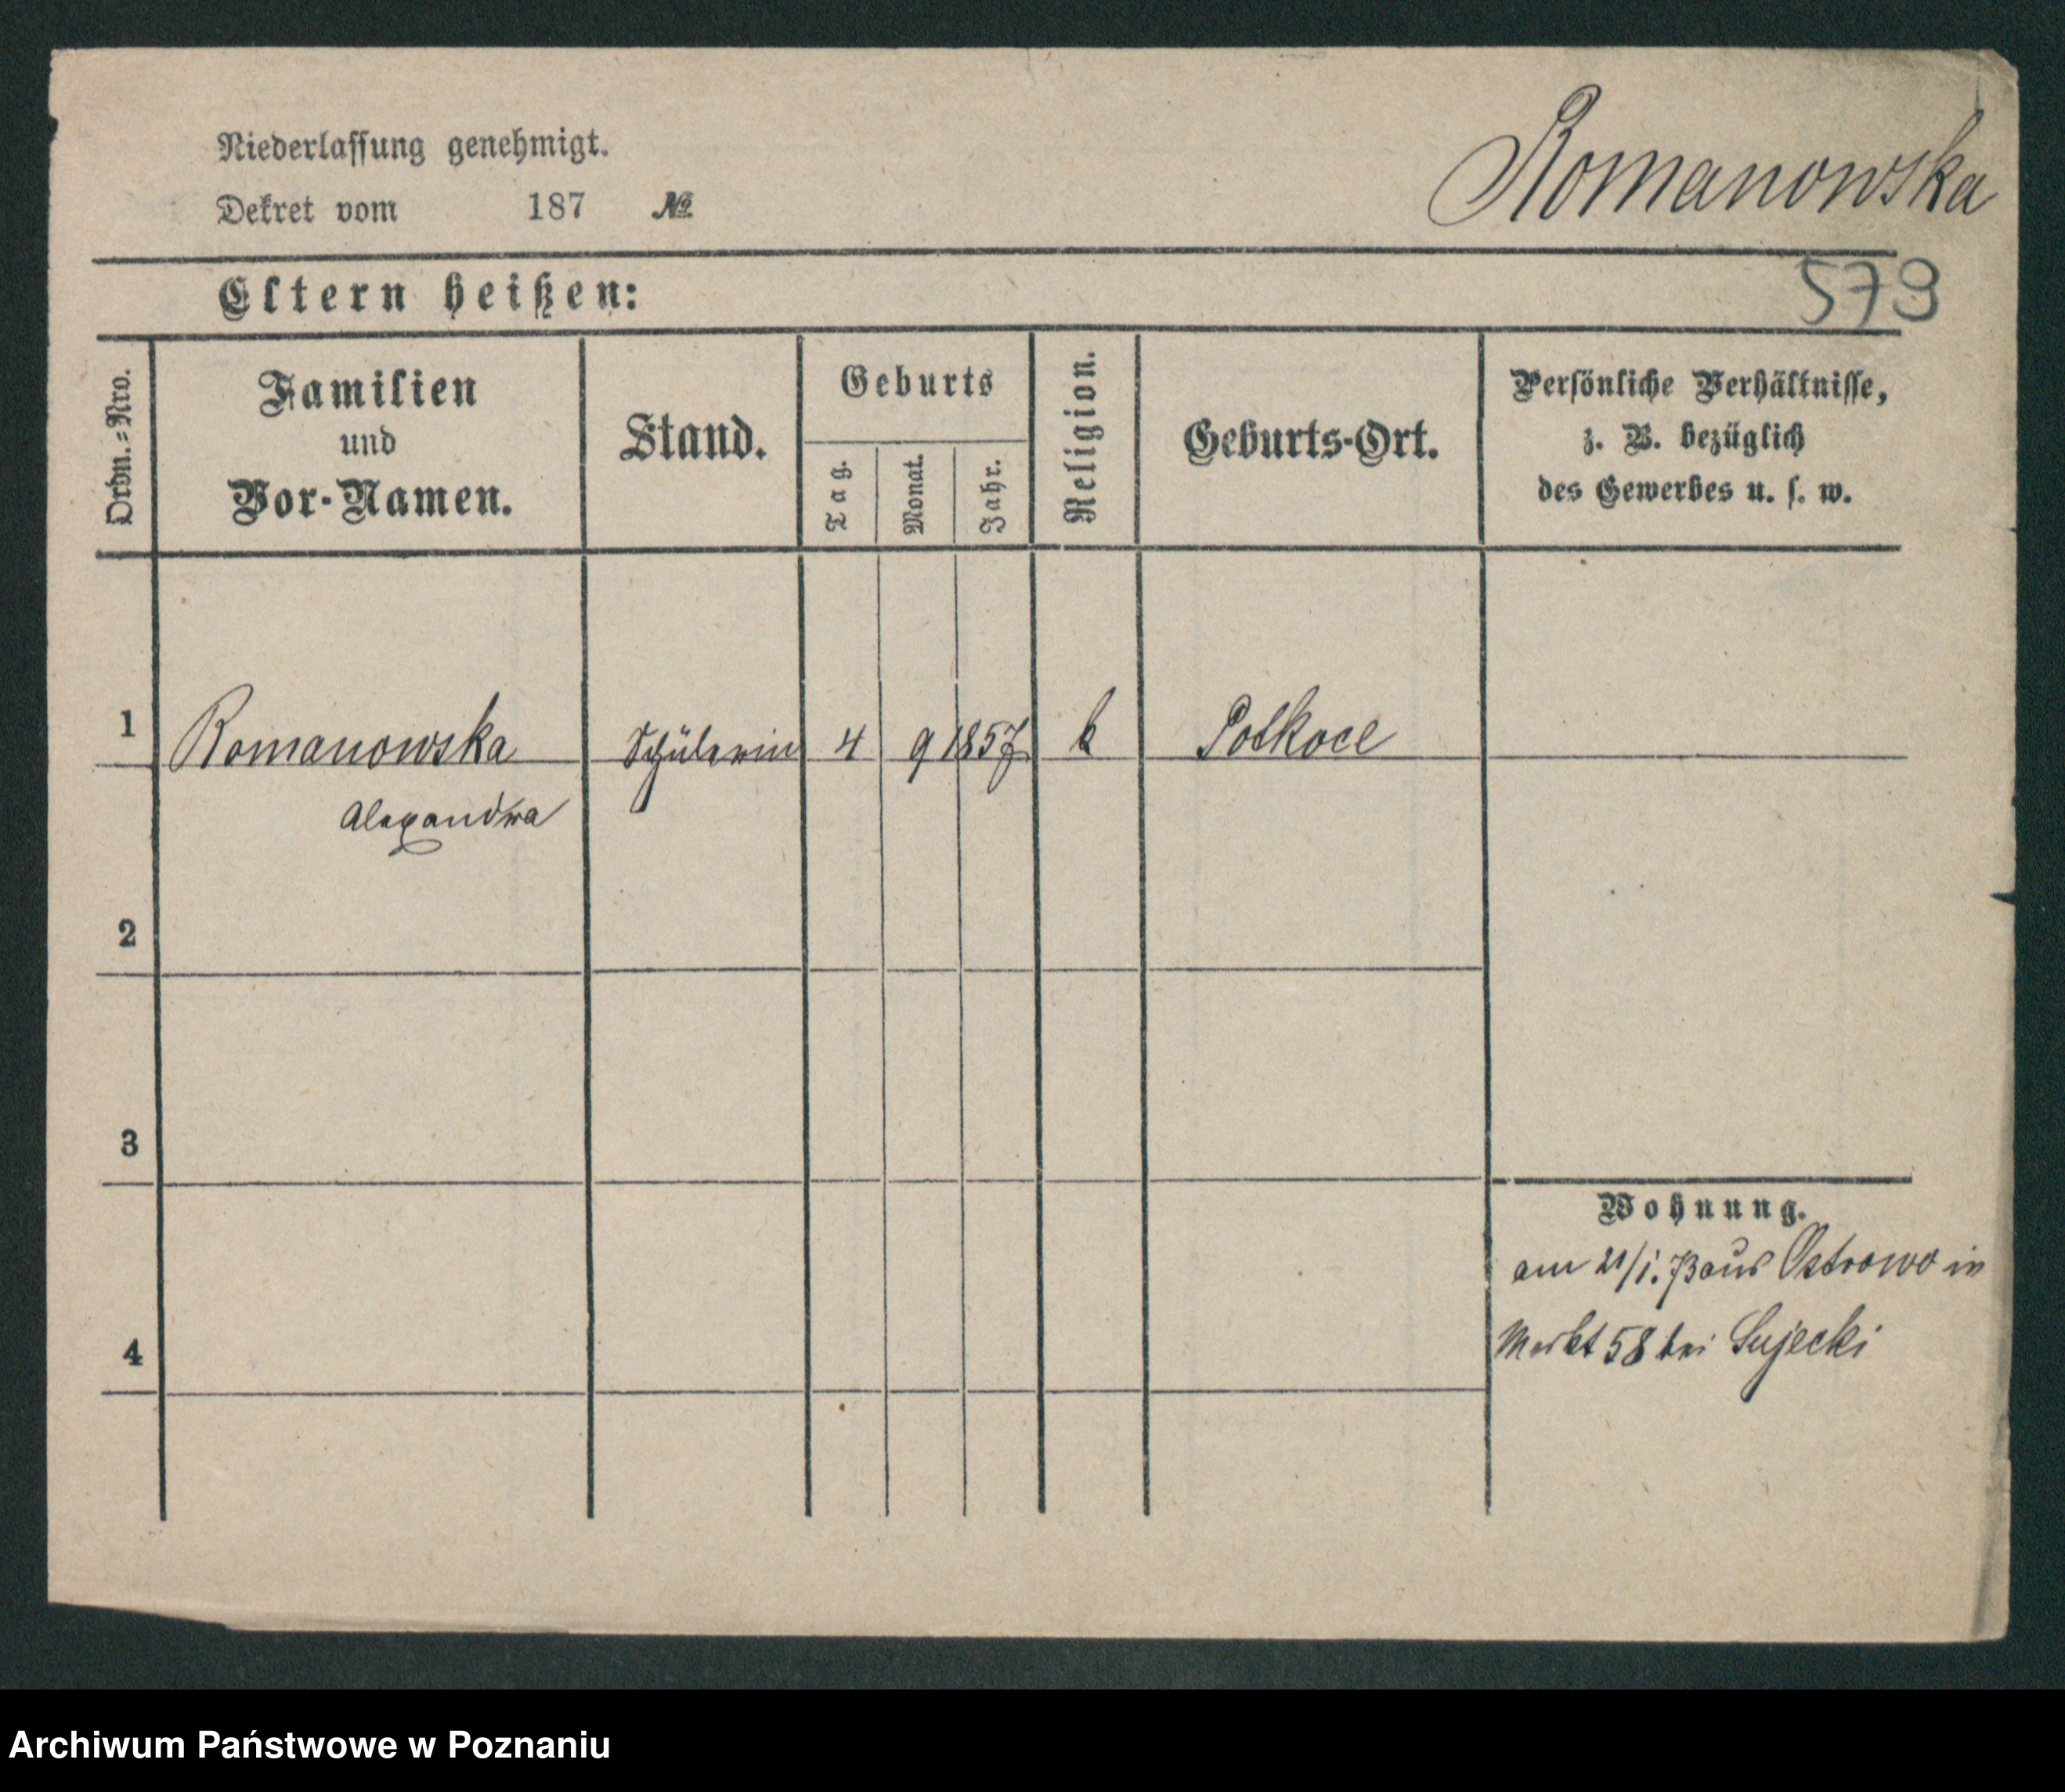 Niederlassung genehmigt.
Dekret vom 187 №
Romanowska
579
Eltern heißen:
Ordn.-Nro.
Familien
und
Vor-Namen.
Stand.
Geburts
Tag.
Monat.
Jahr.
Religion.
Geburts-Ort.
Persönliche Verhältnisse,
z. B. bezüglich
des Gewerbes u. s. w.
1 Romanowska Schülerin 4 9 1857 k
Alexandra
2
3
4
Wohnung.
am 21/1. 73 aus Ostrowo in
Markt 58 bei Sujecki
Archiwum Państwowe w Poznaniu